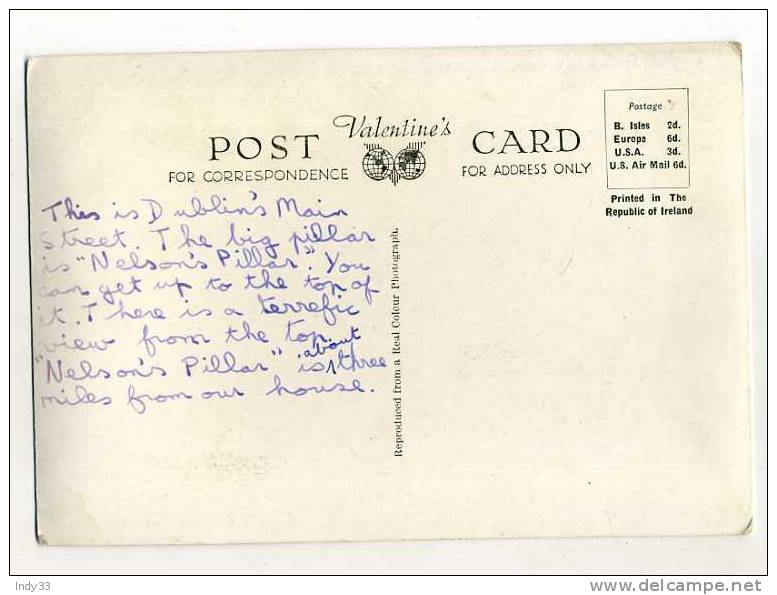 Valentine's
POST CARD
FOR CORRESPONDENCE
FOR ADDRESS ONLY
Postage
B. Isles 2d.
Europe 6d.
U.S.A. 3d.
U.S. Air Mail 6d.
Printed in The
Republic of Ireland
This is Dublin's Main
Street. The big pillar
is "Nelson's Pillar". You
can get up to the top of
it. There is a terrefic
view from the top.
"Nelson's Pillar" is about three
miles from our house.
Reproduced from a Real Colour Photograph.
Indy33
delcampe.net